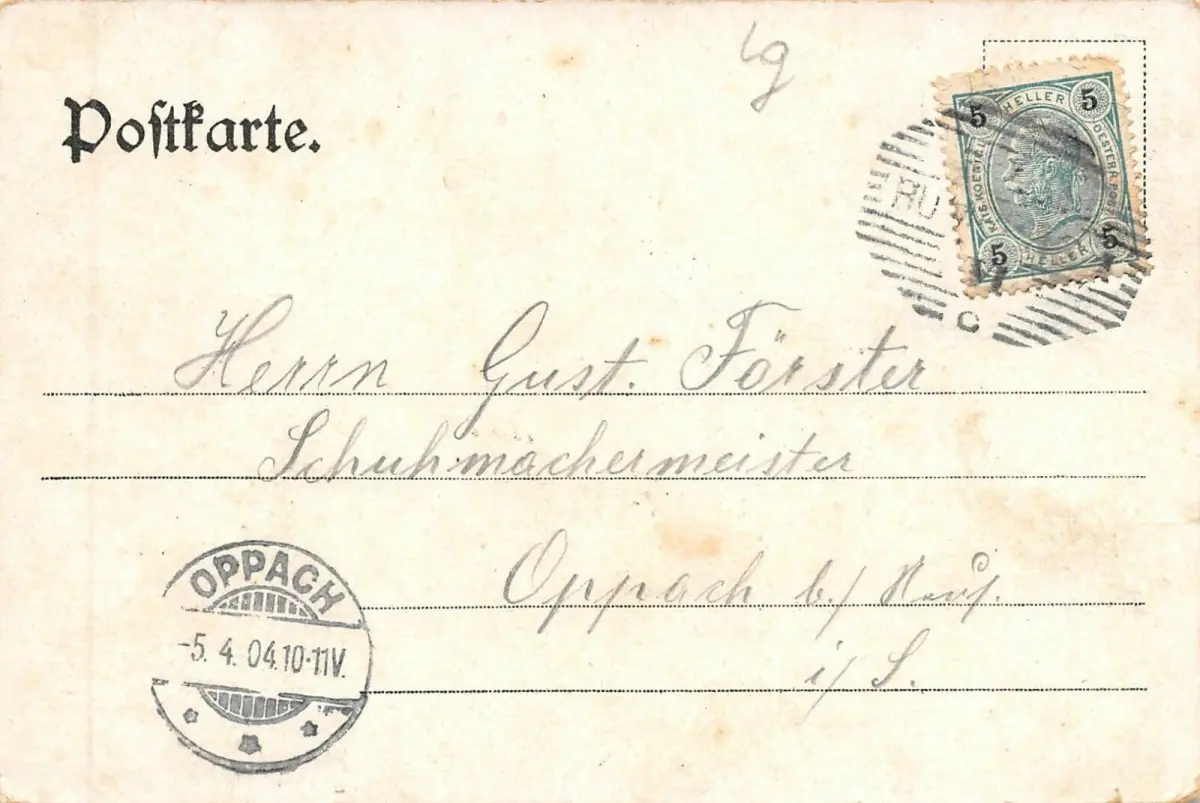 lg
Postkarte.
5 HELLER 5
KAIS. KOENIGL. OESTERR. POST
5 HELLER 5
RU
c
Herrn Gust. Förster
Schuhmachermeister
Oppach b./
i/ S.
OPPACH
-5. 4. 04. 10-11V.